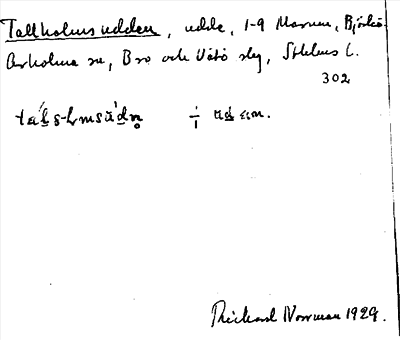 Tallholmsudden, udde, 1-9 Marum, Björkö-
Arholma sn, Bro och Vätö slg, Sthlms l.
302
Richard Norrman 1929.